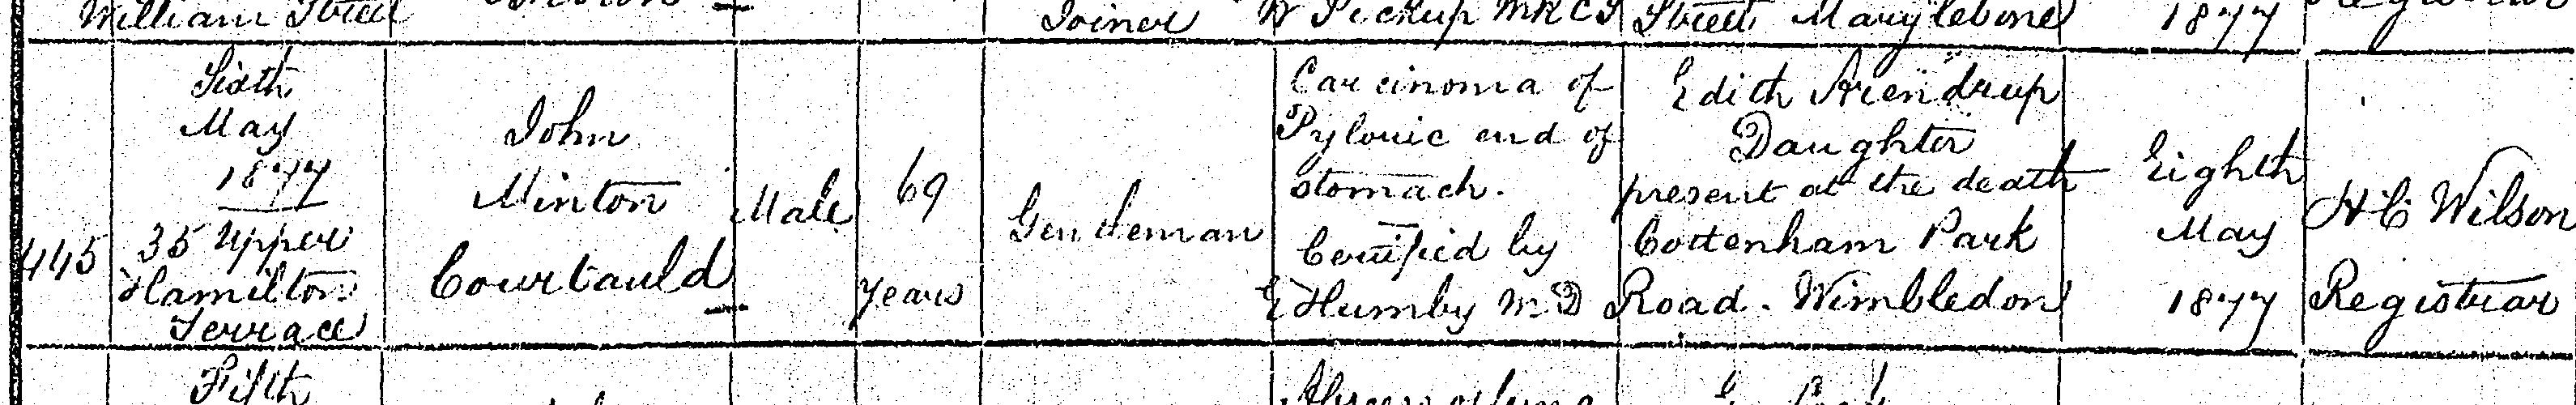 William Street
Joiner
W Pickup MRCS
Street Marylebone
1877
445
Sixth
May
1877
35 Upper
Hamilton
Terrace
John
Minton
Courtauld
Male
69
Years
Gentleman
Carcinoma of
Pyloric end of
stomach.
Certified by
E Humby MD
Edith Arendrup
Daughter
present at the death
Cottenham Park
Road. Wimbledon
Eighth
May
1877
H C Wilson
Registrar
Fifth